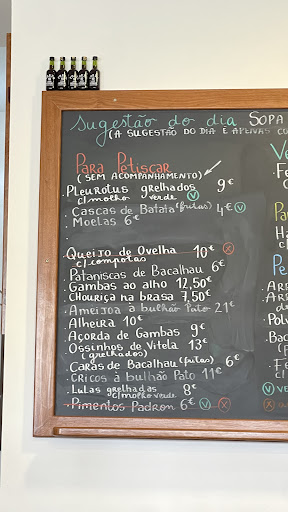 Sugestão do dia SOPA
(A SUGESTÃO DO DIA É APENAS CO
PARA PETISCAR
(SEM ACOMPANHAMENTO)
.PLEUROTUS grelhados 9€
c/molho verde V
.CASCAS de Batata (fritas) 4€ V
.Moelas 6€
.Queijo de Ovelha 10€ X
c/compotas
.Pataniscas de Bacalhau 6€
.Gambas ao alho 12,50€
.Chouriça na brasa 7,50€
.Ameijoa à bulhão Pato 21€
.Alheira 10€
.Açorda de Gambas 9€
.Ossinhos de Vitela 13€
(grelhados)
.Caras de Bacalhau (fritas) 6€
.Cricos à bulhão Pato 11€
.Lulas grelhadas 8€
c/molho verde
.Pimentos Padron 6€ V X
Ve
.Fe
c
Pa
Ha
c/
Pe
.Arr
d
.Arr
d
.Pol
.Bac
.Fe
c/
V VE
X